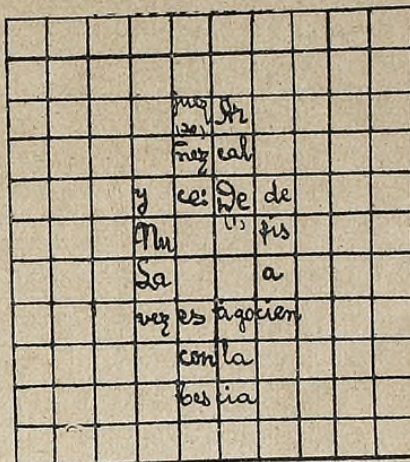 juez Ar
(20)
ñez cal
y ce: De de
(1)
Mu fis
La a
vez es tigocien
con la
bes cia